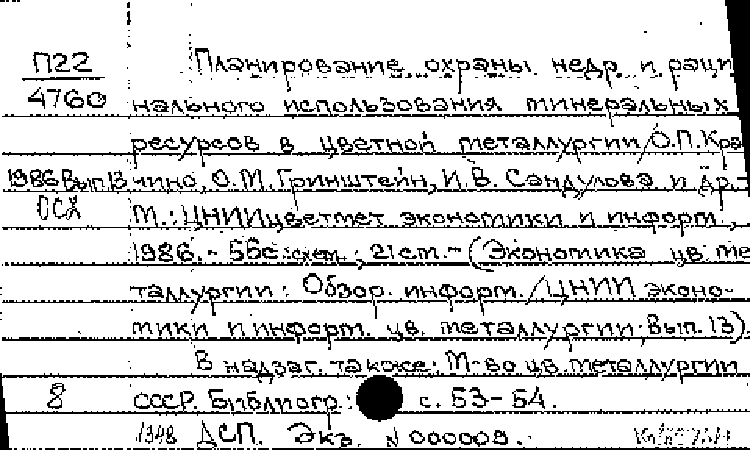 П22
4760
Планирование охраны недр и раци
нального использования минеральных
ресурсов в цветной металлургии / О.П. Кра
1986 Вып 13 чино, О.М. Гринштейн, И.В. Сандулова и др. -
М.: ЦНИИцветмет экономики и информ.,
1986. - 56с.: схем.; 21 см. - (Экономика цв. ме
таллургии: Обзор. информ. / ЦНИИ эконо-
мики и информ. цв. металлургии; Вып. 13).
В надзаг. также: М-во цв. металлургии
8 СССР. Библиогр.: с. 53-54.
1348 ДСП. Экз. N 000008.